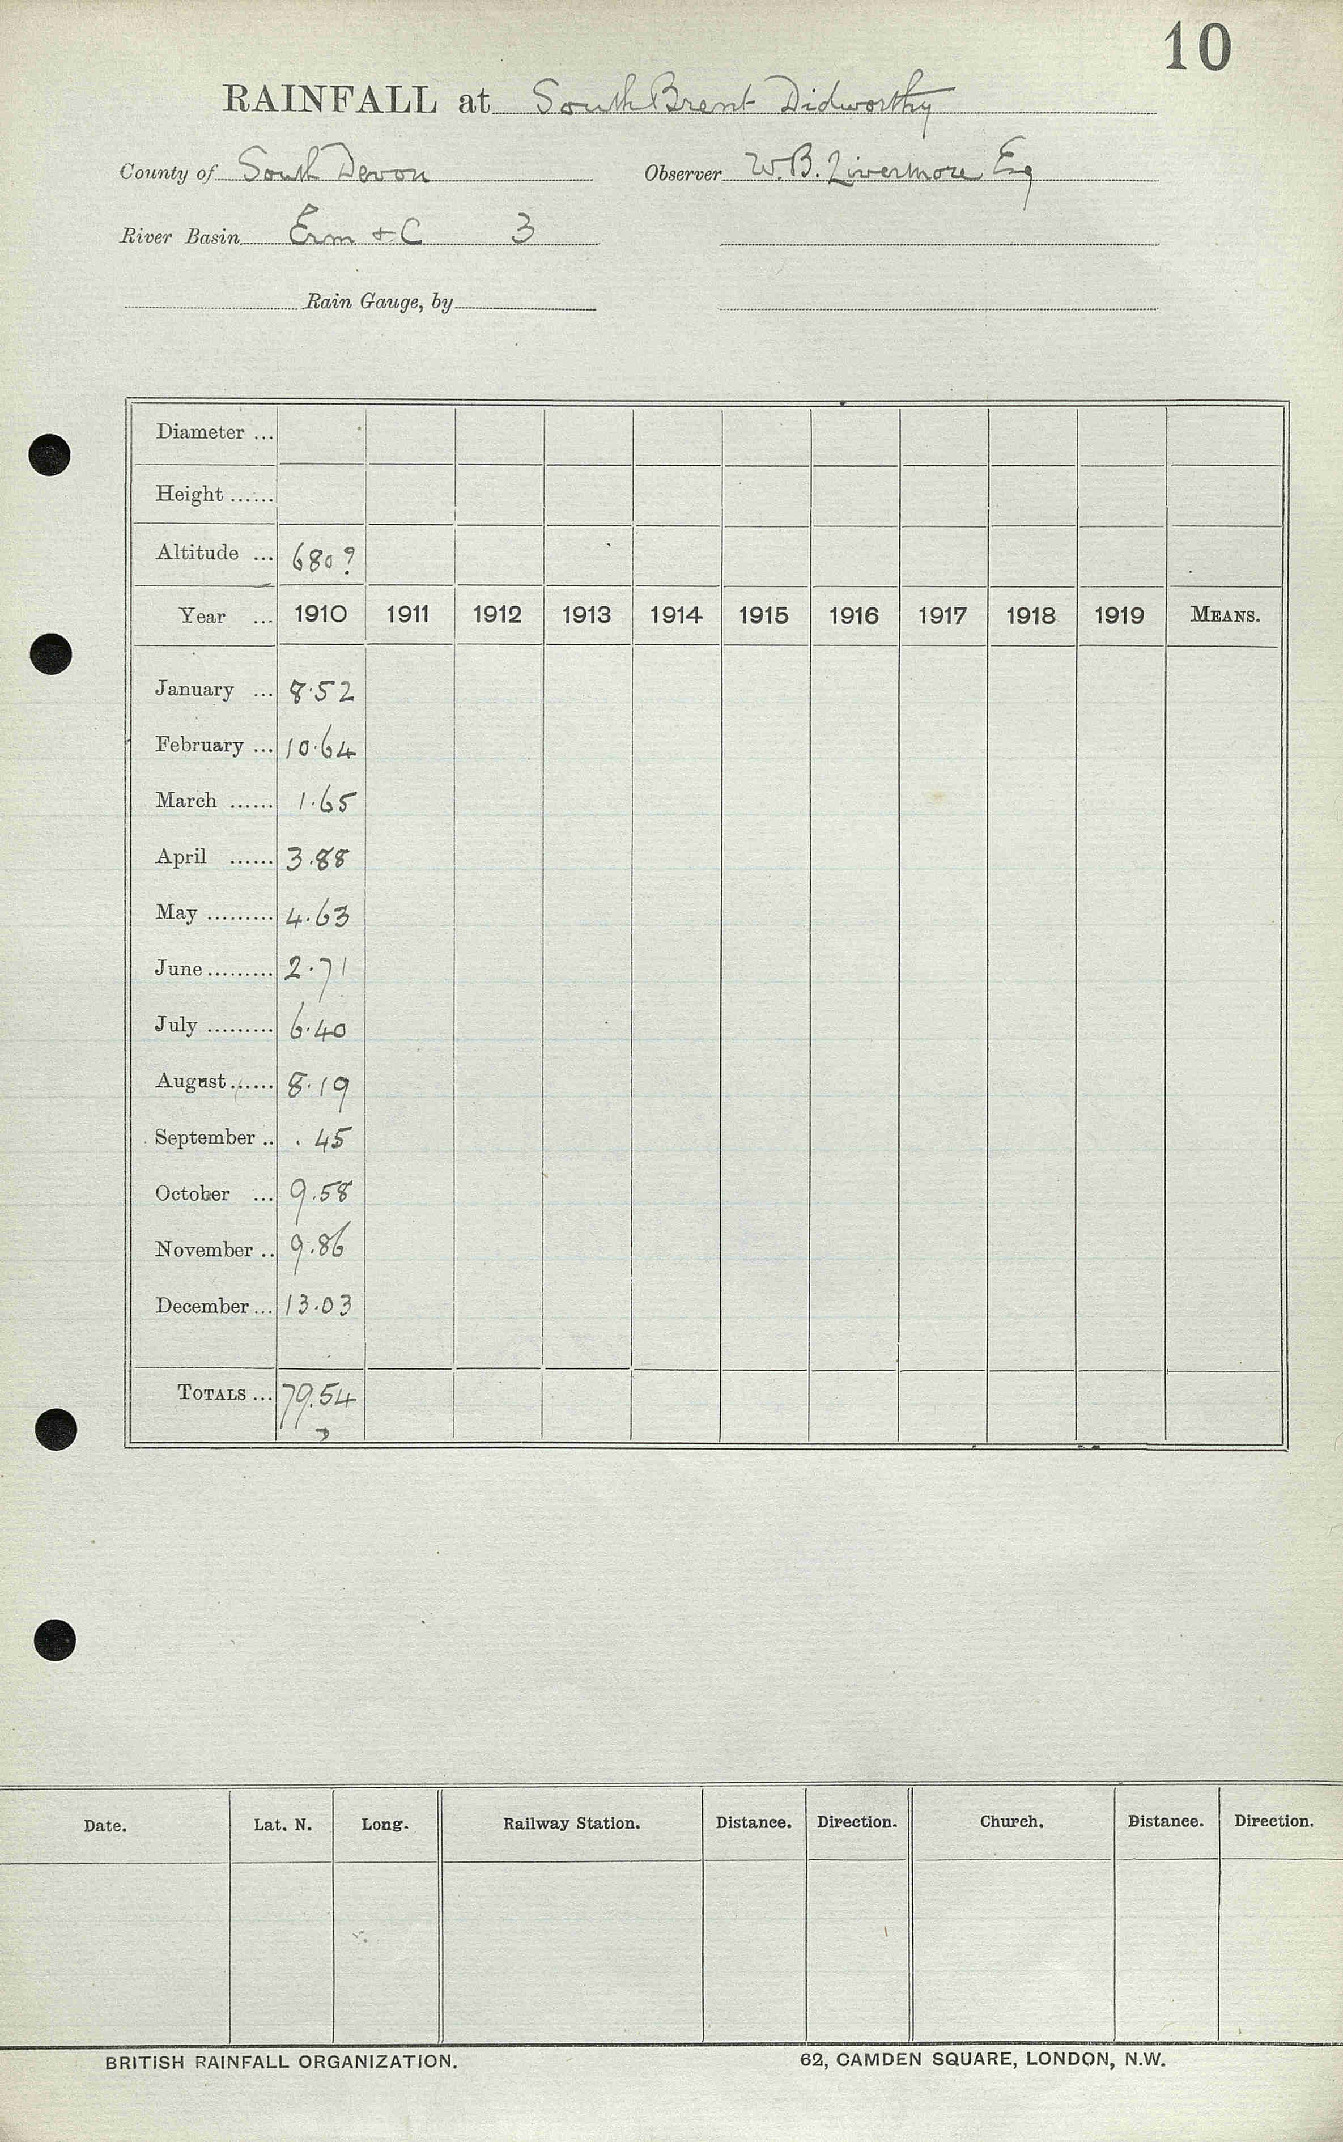 10
RAINFALL at South Brent Didworthy
County of South Devon Observer W. B. Livermore Esq
River Basin Erm + C 3
Rain Gauge, by
Diameter ...
Height ......
Altitude ... 680?
Year ... 1910 1911 1912 1913 1914 1915 1916 1917 1918 1919 MEANS.
January ... 8.52
February ... 10.64
March ...... 1.65
April ...... 3.88
May ......... 4.63
June ......... 2.71
July ......... 6.40
August ...... 8.19
September .. .45
October ... 9.58
November .. 9.86
December ... 13.03
TOTALS ... 79.54
Date. Lat. N. Long. Railway Station. Distance. Direction. Church. Distance. Direction.
BRITISH RAINFALL ORGANIZATION. 62, CAMDEN SQUARE, LONDON, N.W.